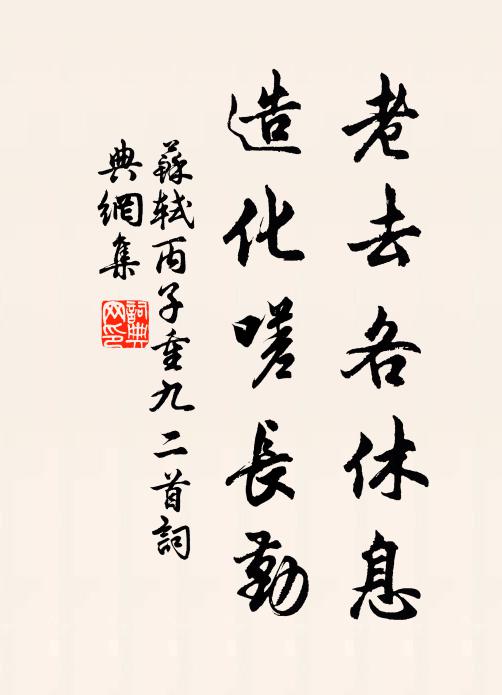 老去各休息
造化嗟長勤
蘇軾丙子重九二首詞
典網集
詞典
網印